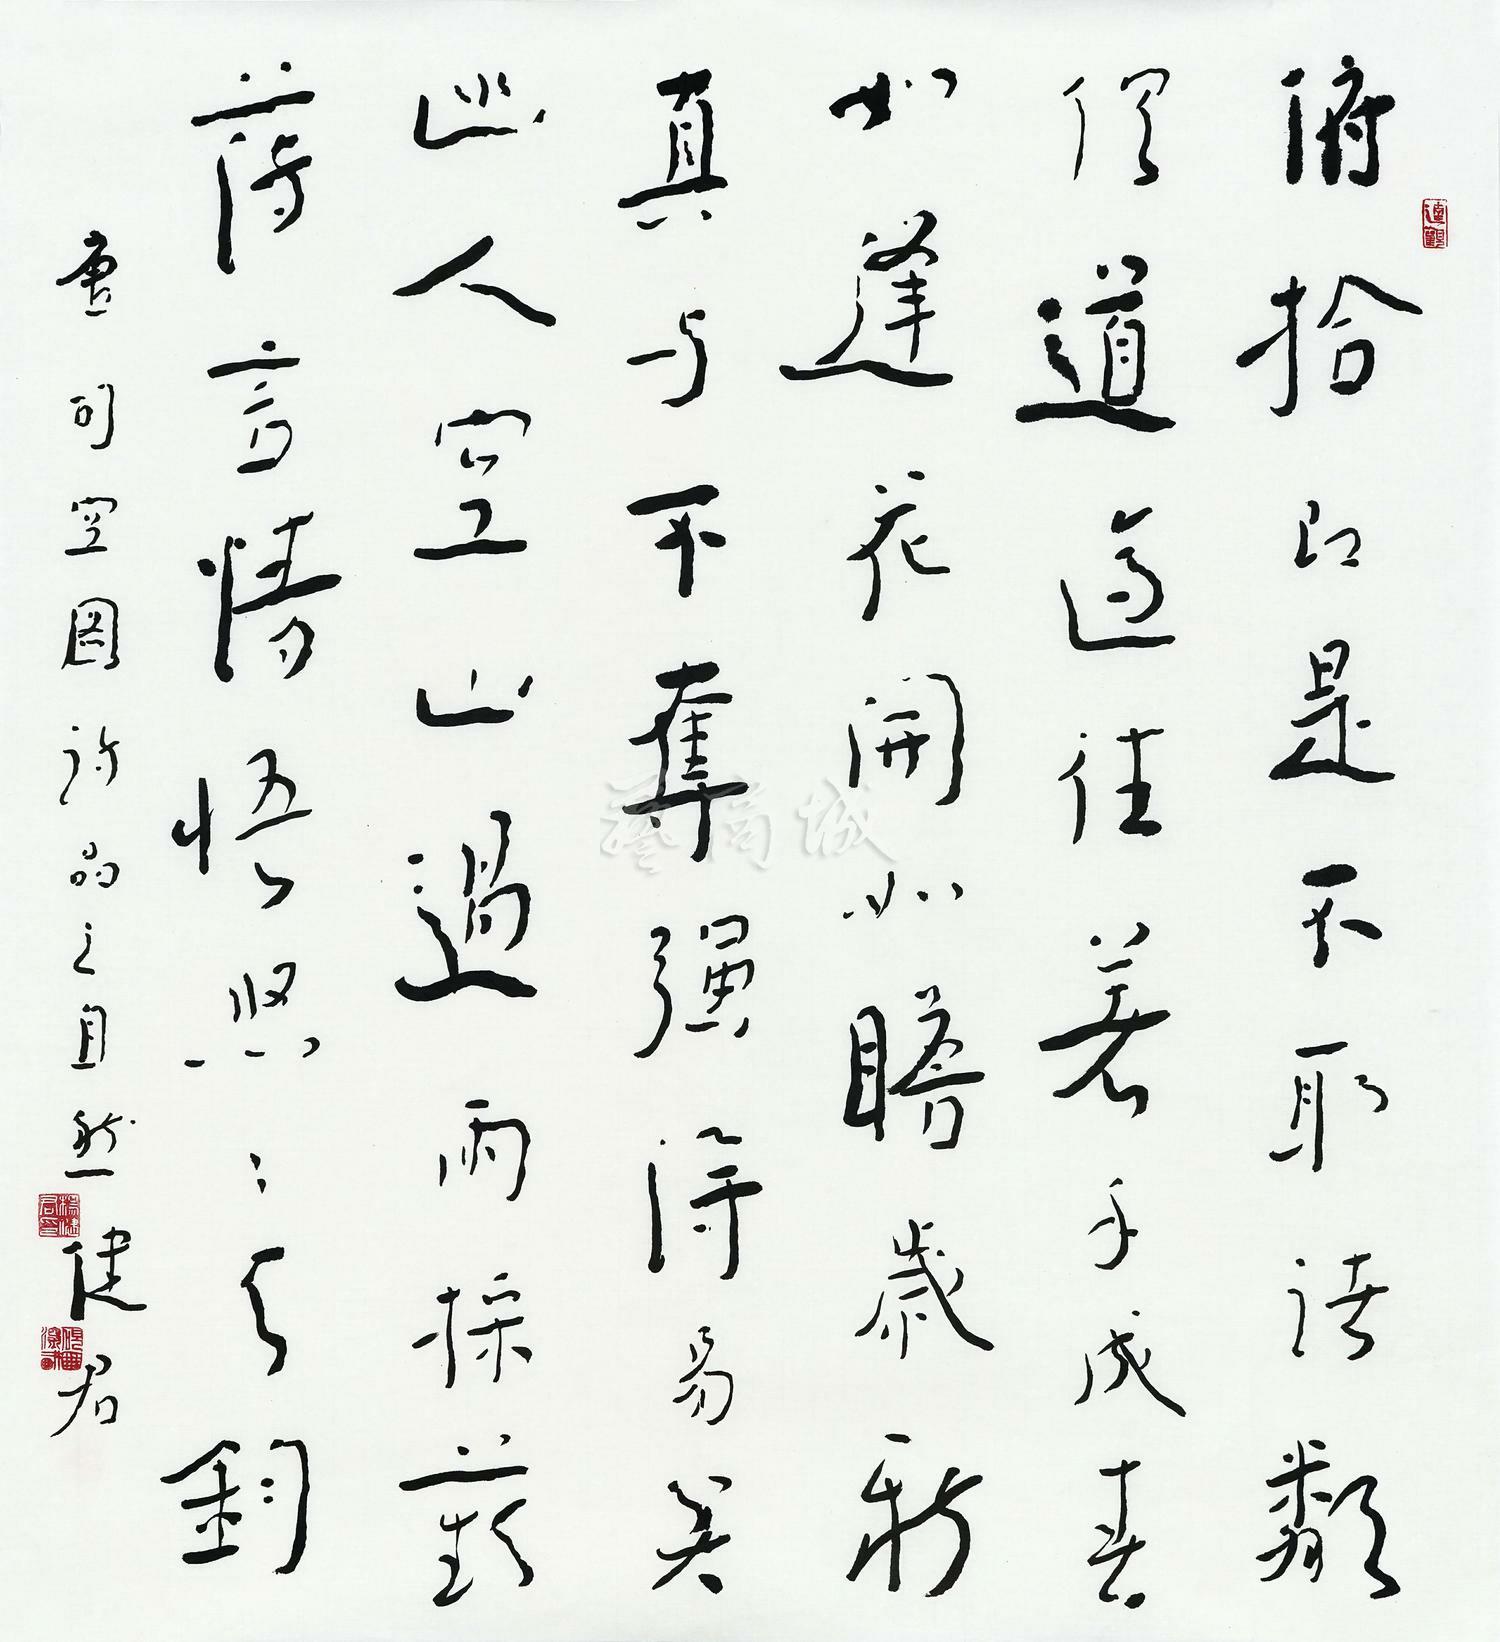 俯拾即是不取諸鄰
俱道適往著手成春
如逢花開如瞻歲新
真与不奪强得易貧
幽人空山過雨採蘋
薄言情悟悠〻天鈞
唐司空圖詩品之自然 健君
藝商城